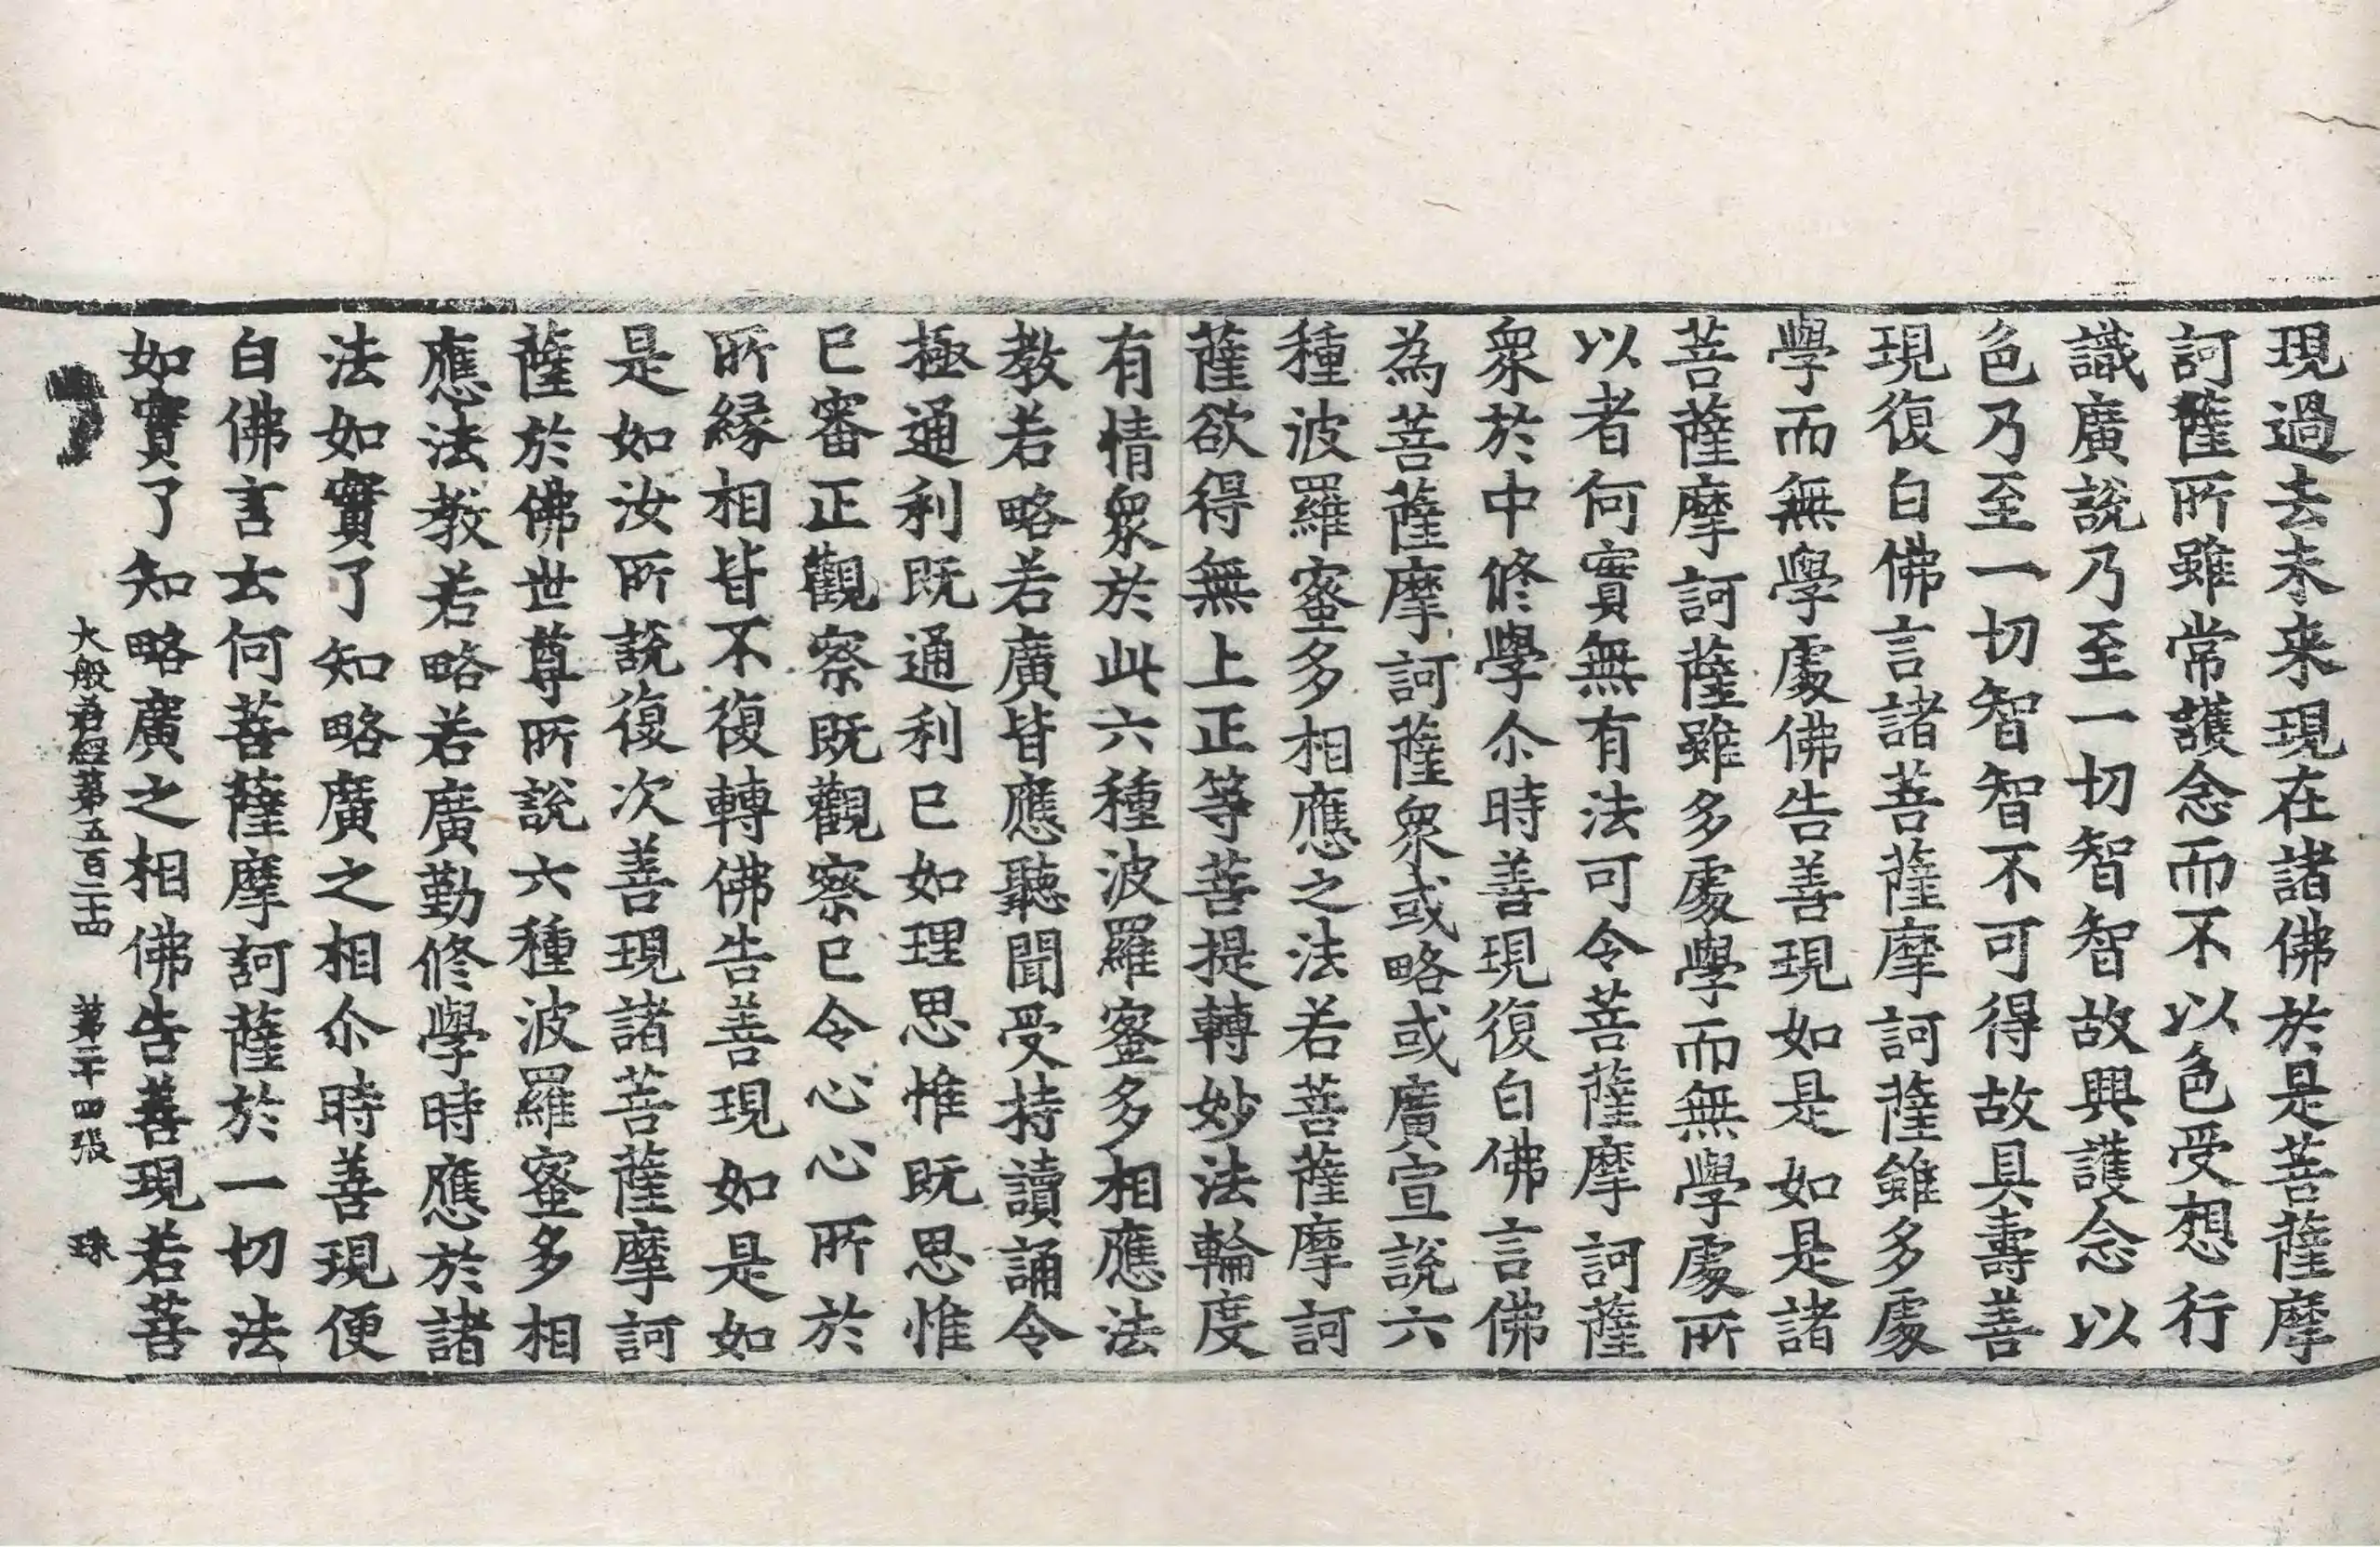 現過去未来現在諸佛於是菩薩摩
訶薩所雖常護念而不以色受想行
識廣說乃至一切智智故興護念以
色乃至一切智智不可得故具壽善
現復白佛言諸菩薩摩訶薩雖多處
學而無學處佛告善現如是如是諸
菩薩摩訶薩雖多處學而無學處所
以者何實無有法可令菩薩摩訶薩
衆於中修學尒時善現復白佛言佛
為菩薩摩訶薩衆或略或廣宣說六
種波羅蜜多相應之法若菩薩摩訶
薩欲得無上正等菩提轉妙法輪度
有情衆於此六種波羅蜜多相應法
教若略若廣皆應聽聞受持讀誦令
極通利既通利已如理思惟既思惟
已審正觀察既觀察已令心心所於
所縁相皆不復轉佛告善現如是如
是如汝所說復次善現諸菩薩摩訶
薩於佛世尊所說六種波羅蜜多相
應法教若略若廣勤修學時應於諸
法如實了知略廣之相尒時善現便
白佛言云何菩薩摩訶薩於一切法
如實了知略廣之相佛告善現若菩
大般若經第五百二十四 第二十四張 珠